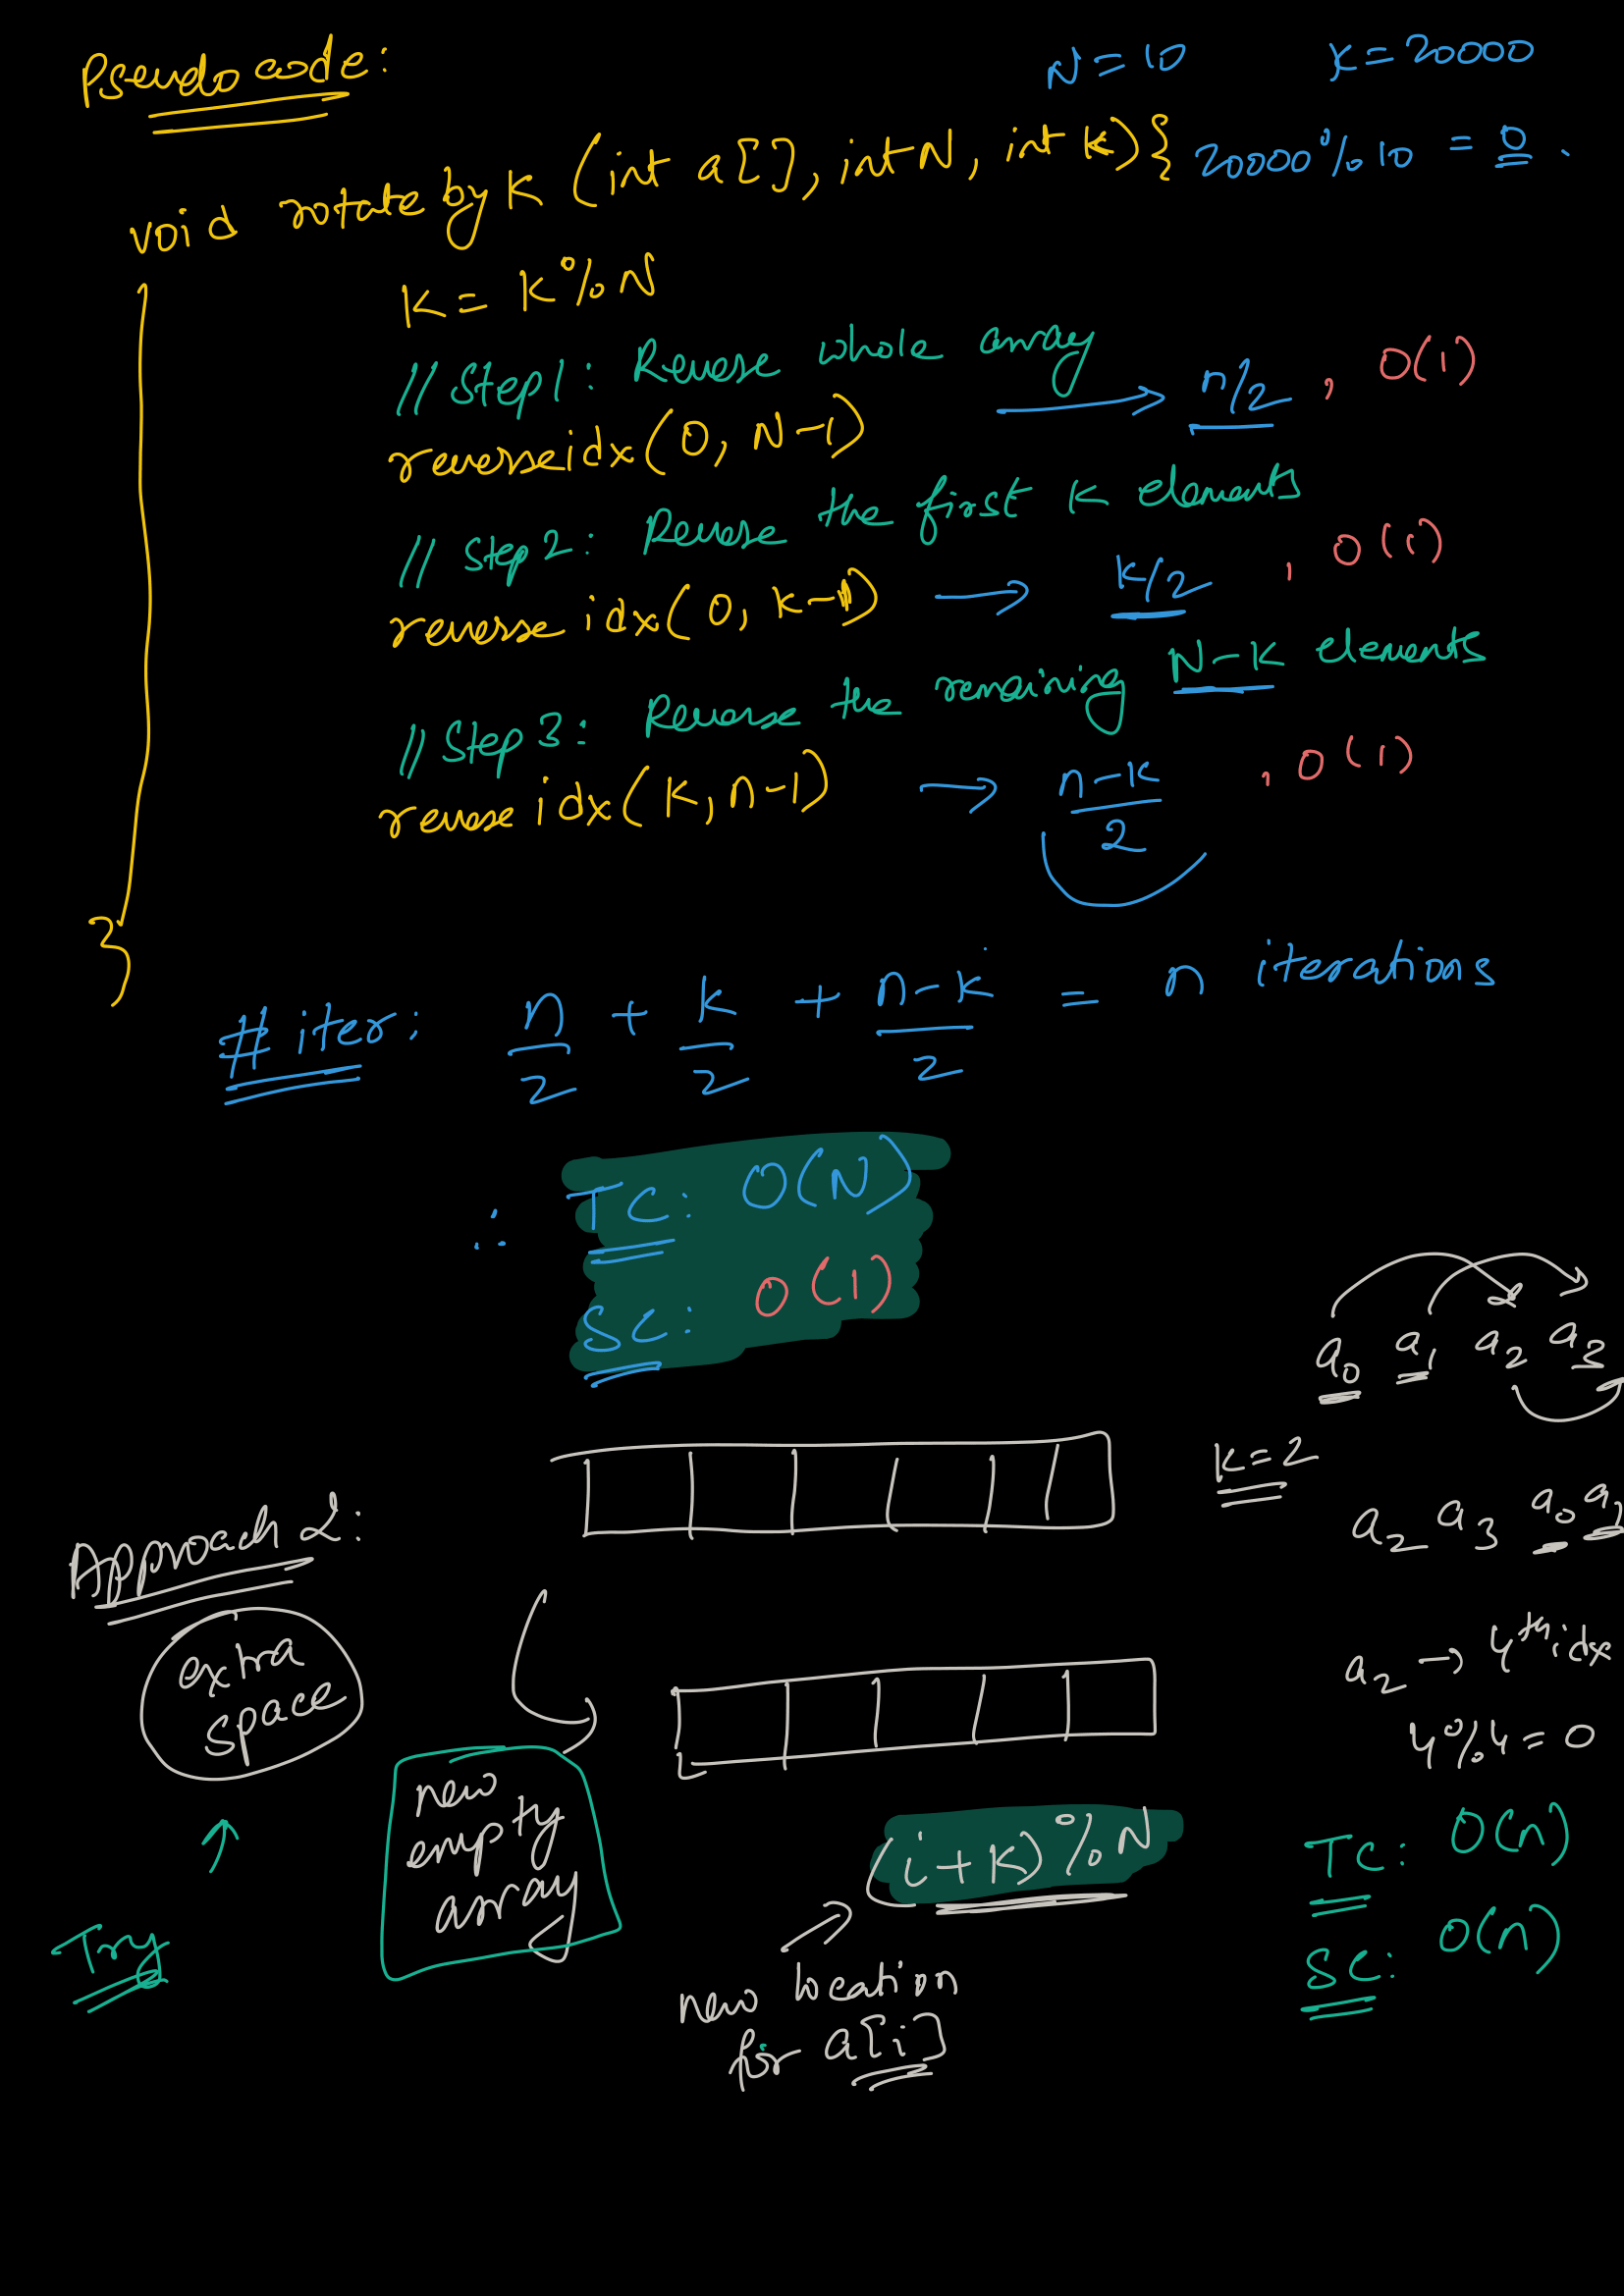 Pseudo code:
N = 10 K = 20000
void rotate by K (int a[], int N, int K) { 20000 % 10 = 0 .
K = K % N
// Step 1 : Reverse whole array
reverse idx (0, N-1) → n/2 , O(1)
// Step 2 : Reverse the first K elements
reverse idx (0, K-1) → K/2 , O(1)
// Step 3 : Reverse the remaining N-K elements
reverse idx (K, n-1) → n-K/2 , O(1)
}
# iter : n/2 + K/2 + n-K/2 = n iterations
∴ TC : O(N)
SC : O(1)
a0 a1 a2 a3
K = 2
a2 a3 a0 a1
Approach 2 :
extra
space
a2 → 4th idx
4 % 4 = 0
new
empty
array
(i+K) % N
TC : O(n)
SC : O(n)
Try
new location
for a[i]